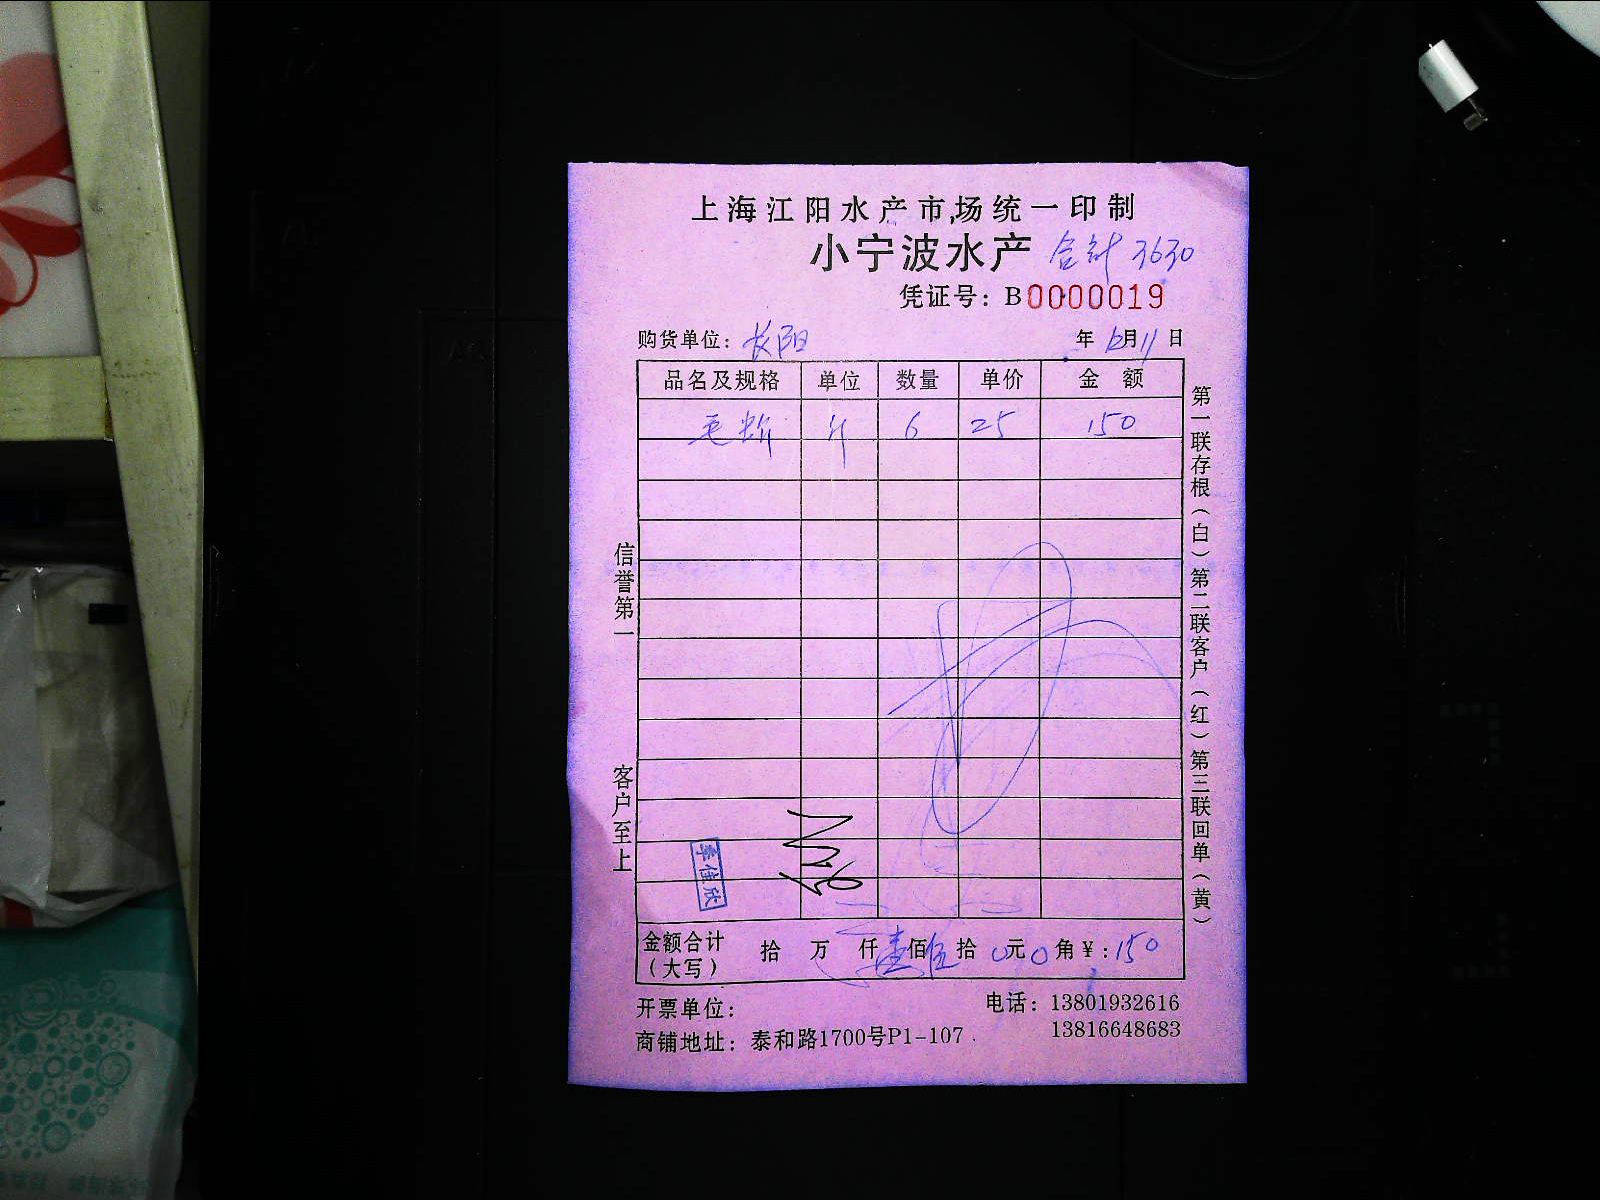 上海江阳水产市场统一印制
小宁波水产 合计 3630
凭证号：B0000019
购货单位：长阳 年 12月11日
品名及规格 单位 数量 单价 金额
毛蚶 斤 6 25 150
信誉第一
客户至上
第一联存根（白）第二联客户（红）第三联回单（黄）
李佳欣
金额合计（大写） 拾 万 仟 壹佰 伍拾 0元 0角 ￥：150
开票单位：
电话：13801932616
13816648683
商铺地址：泰和路1700号P1-107